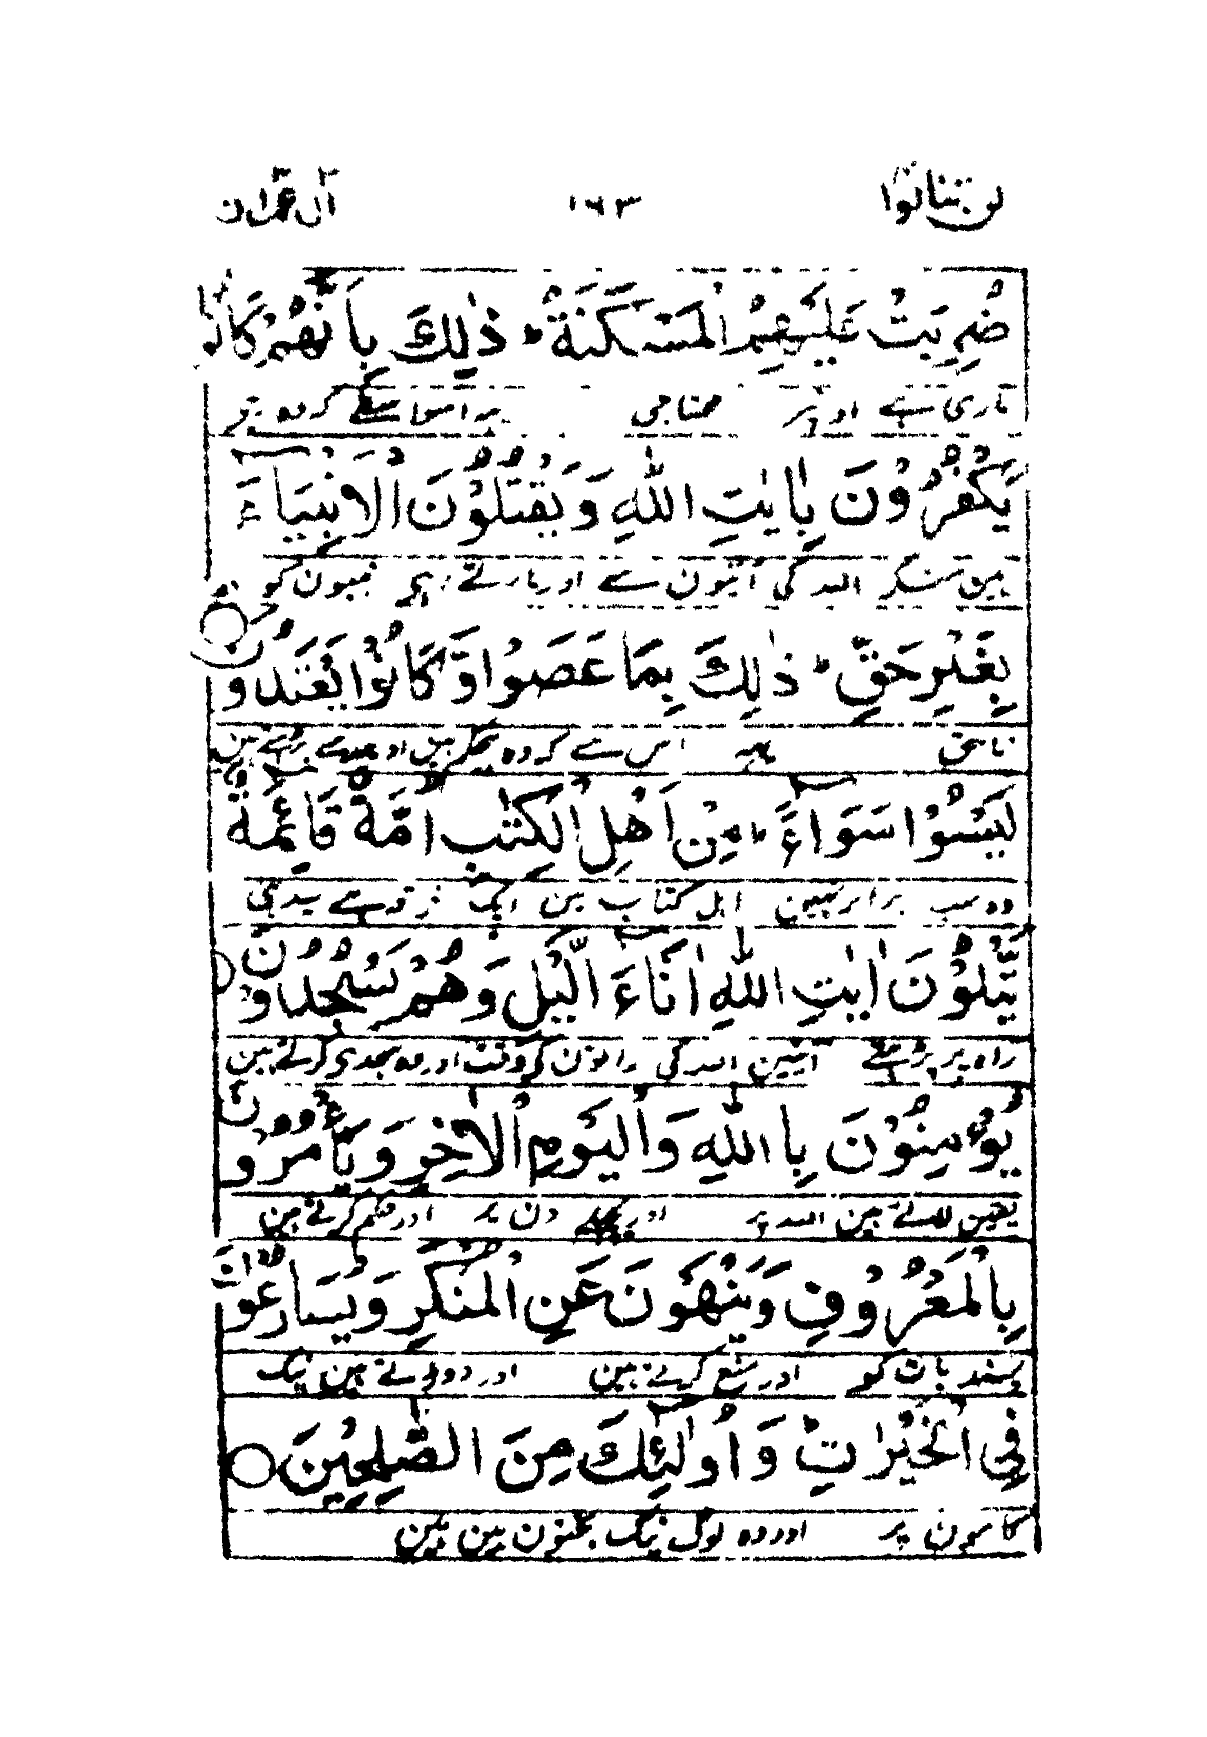 لن تنالوا ۱۶۳ اٰل عمرٰن
ضُرِبَتْ عَلَيْهِمُ الْمَسْكَنَةُ ؕ ذٰلِكَ بِاَنَّهُمْ كَانُوْا
ماری ہے اوپر محتاجی یہ اسواسطے کہ وہ تھے
يَكْفُرُوْنَ بِاٰيٰتِ اللّٰهِ وَيَقْتُلُوْنَ الْاَنْبِيَآءَ
ہین منکر اللہ کی آیتون سے اور مارتے نبیون کو
بِغَيْرِ حَقٍّ ؕ ذٰلِكَ بِمَا عَصَوْا وَّكَانُوْا يَعْتَدُوْنَ
ناحق یہ اس سے کہ وہ ہین اور
لَيْسُوْا سَوَآءً ؕ مِنْ اَهْلِ الْكِتٰبِ اُمَّةٌ قَآئِمَةٌ
وہ سب برابر نہین اہل کتاب مین ایک فرقہ ہے سیدہی
يَّتْلُوْنَ اٰيٰتِ اللّٰهِ اٰنَآءَ الَّيْلِ وَهُمْ يَسْجُدُوْنَ
راہ پر پڑہتے آیتین اللہ کی راتون کے وقت اور وہ سجدی کرتے ہین
يُؤْمِنُوْنَ بِاللّٰهِ وَالْيَوْمِ الْاٰخِرِ وَيَاْمُرُوْنَ
یقین لاتے ہین اللہ پر اور پچھلے دن پر اور حکم کرتے ہین
بِالْمَعْرُوْفِ وَيَنْهَوْنَ عَنِ الْمُنْكَرِ وَيُسَارِعُوْنَ
پسند بات کو اور منع کرتے ہین اور دوڑتے ہین نیک
فِى الْخَيْرٰتِ ؕ وَاُولٰٓئِكَ مِنَ الصّٰلِحِيْنَ
کامون پر اور وہ لوگ نیک بختون مین ہین